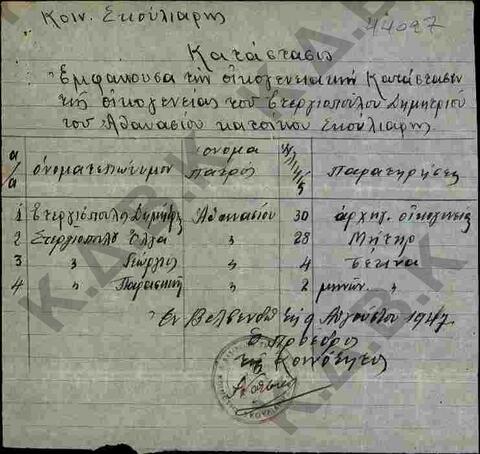 Κοιν. Σκούλιαρης
44027
Κατάστασις
Εμφαίνουσα την οικογενειακήν Κατάστασιν
της οικογενείας του Στεργιοπούλου Δημητρίου
του Αθανασίου κατοίκου Σκούλιαρης.
α/α ὀνοματεπώνυμον ὄνομα πατρός Παρατηρήσεις
1 Στεργιόπουλος Δημήτριος Αθανασίου 30 ἀρχηγ. οἰκογενείας
2 Στεργιοπούλου Όλγα " 28 Μήτηρ
3 " Γεώργιος " 4 τέκνα
4 " Παρασκευή " 2 μηνών "
Εν Βελβενδώ τη 9 Αυγούστου 1947
Ο Πρόεδρος
της Κοινότητος
Κ.Δ.Β.Κ